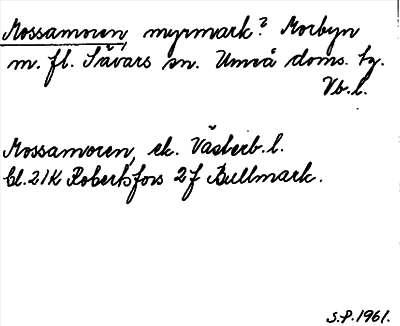 Mossamoren, myrmark? Morbyn
m. fl. Sävars sn. Umeå doms. tg.
Vb. l.
Mossamoren, ek. Västerb. l.
bl. 21K Robertsfors 2f Bullmark.
S.P. 1961.